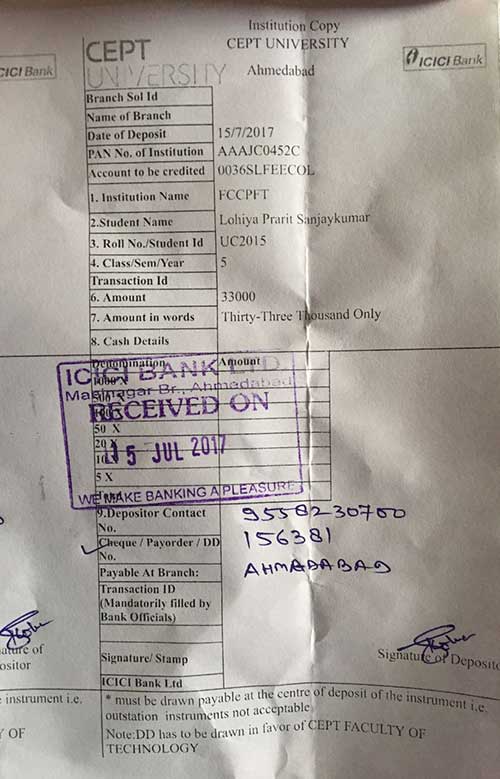 Institution Copy
CEPT UNIVERSITY
Ahmedabad
CEPT
UNIVERSITY
ICICI Bank
ICICI Bank
Branch Sol Id
Name of Branch
Date of Deposit 15/7/2017
PAN No. of Institution AAAJC0452C
Account to be credited 0036SLFEECOL
1. Institution Name FCCPFT
2.Student Name Lohiya Prarit Sanjaykumar
3. Roll No./Student Id UC2015
4. Class/Sem/Year 5
Transaction Id
6. Amount 33000
7. Amount in words Thirty-Three Thousand Only
8. Cash Details
Denomination Amount
1000 X
50 X
20 X
5 X
ICICI BANK LTD.
Maninagar Br., Ahmedabad
RECEIVED ON
15 JUL 2017
WE MAKE BANKING A PLEASURE
9.Depositor Contact No. 9558230700
Cheque / Payorder / DD No. 156381
Payable At Branch: AHMADABAD
Transaction ID
(Mandatorily filled by
Bank Officials)
Signature/ Stamp
ICICI Bank Ltd
ature of
ositor
Signature of Deposito
e instrument i.e.
Y OF
* must be drawn payable at the centre of deposit of the instrument i.e.
outstation instruments not acceptable
Note:DD has to be drawn in favor of CEPT FACULTY OF
TECHNOLOGY